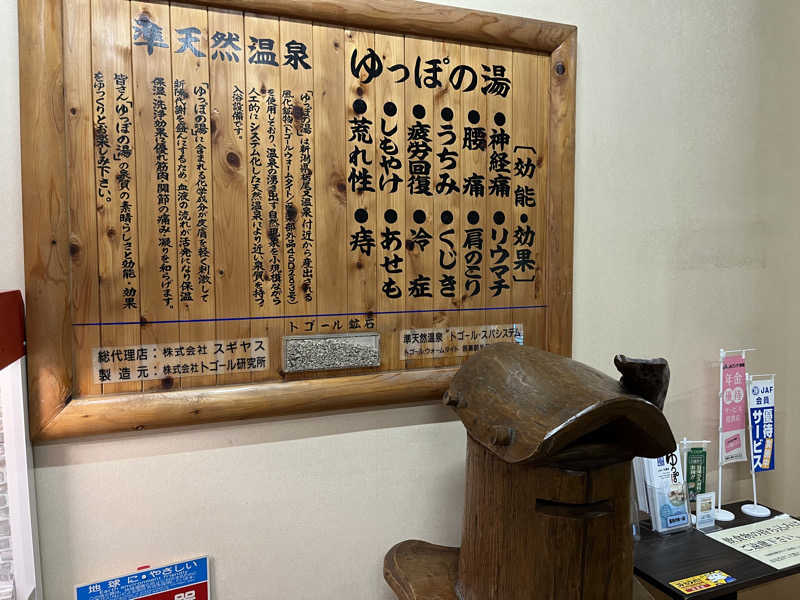 準天然温泉
ゆっぽの湯
〔効能・効果〕
●神経痛 ●リウマチ
●腰痛 ●肩のこり
●うちみ ●くじき
●疲労回復 ●冷症
●しもやけ ●あせも
●荒れ性 ●痔
「ゆっぽの湯」は新潟県栃尾又温泉付近から産出される
風化鉱物(トゴールウォームタイト)
を使用しており、温泉の湧き出す自然現象を小規模ながら
人工的にシステム化した天然温泉により近い泉質を持つ
入浴設備です。
「ゆっぽの湯」に含まれる化学成分が皮膚を軽く刺激して
新陳代謝を盛んにするため、血液の流れが活発になり保温・
保湿・洗浄効果に優れ筋肉、関節の痛み・凝りを和らげます。
皆さん「ゆっぽの湯」の泉質の素晴らしさと効能・効果
をゆっくりとお楽しみ下さい。
トゴール鉱石
総代理店：株式会社 スギヤス
製造元：株式会社トゴール研究所
準天然温泉 トゴール・スパシステム
トゴールウォームタイト
地球に・やさしい
年金
優待
サービス
JAF
会員
優待
サービス
ゆっぽ
飲食物の持ち込み
ご遠慮下さい